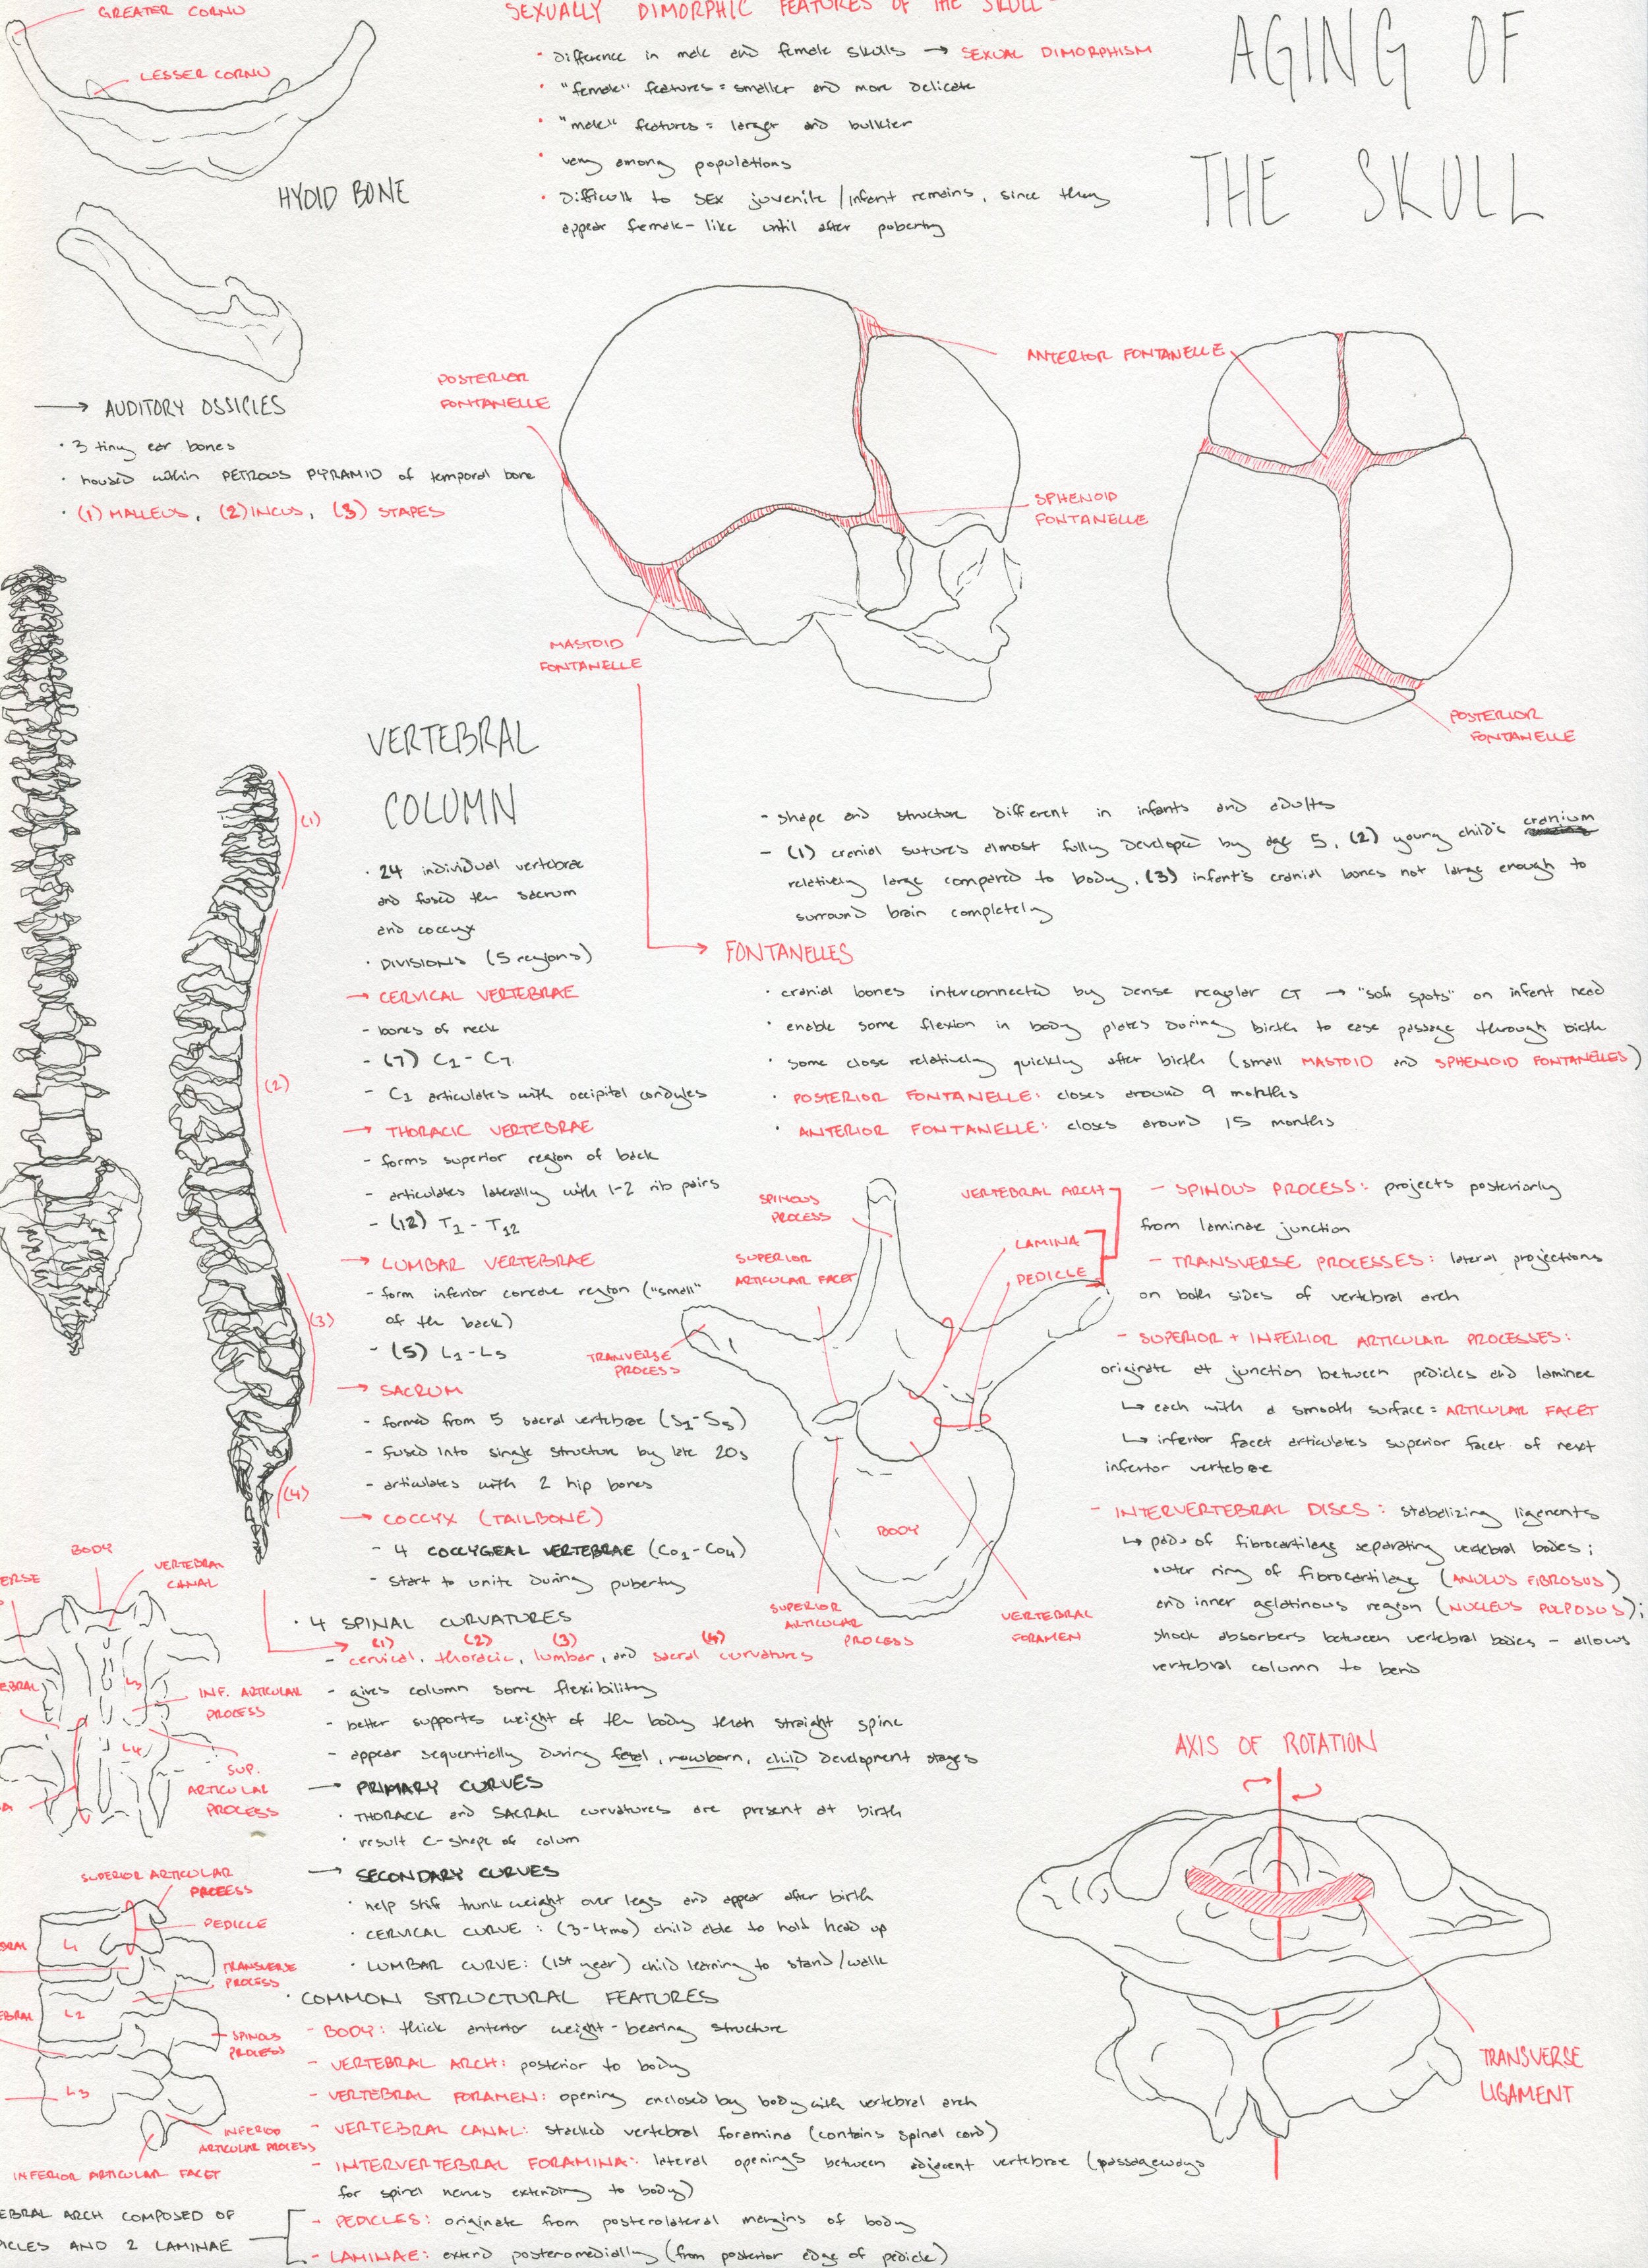 GREATER CORNU
LESSER CORNU
HYOID BONE
→ AUDITORY OSSICLES
· 3 tiny ear bones
· housed within PETROUS PYRAMID of temporal bone
· (1) MALLEUS, (2) INCUS, (3) STAPES
SEXUALLY DIMORPHIC FEATURES OF THE SKULL
· Difference in male and female skulls → SEXUAL DIMORPHISM
· "female" features = smaller and more delicate
· "male" features = larger and bulkier
· vary among populations
· Difficult to SEX juvenile/infant remains, since they
appear female-like until after puberty
AGING OF
THE SKULL
POSTERIOR
FONTANELLE
ANTERIOR FONTANELLE
SPHENOID
FONTANELLE
MASTOID
FONTANELLE
POSTERIOR
FONTANELLE
- shape and structure different in infants and adults
- (1) cranial sutures almost fully developed by age 5, (2) young child's cranium
relatively large compared to body, (3) infant's cranial bones not large enough to
surround brain completely
→ FONTANELLES
· cranial bones interconnected by dense regular CT → "soft spots" on infant head
· enable some flexion in body plates during birth to ease passage through birth
· some close relatively quickly after birth (small MASTOID and SPHENOID FONTANELLES)
· POSTERIOR FONTANELLE: closes around 9 months
· ANTERIOR FONTANELLE: closes around 15 months
VERTEBRAL
COLUMN
(1)
(2)
(3)
(4)
· 24 individual vertebrae
and fused the sacrum
and coccyx
· DIVISIONS (5 regions)
→ CERVICAL VERTEBRAE
- bones of neck
- (7) C1 - C7
- C1 articulates with occipital condyles
→ THORACIC VERTEBRAE
- forms superior region of back
- articulates laterally with 1-2 rib pairs
- (12) T1 - T12
→ LUMBAR VERTEBRAE
- form inferior concave region ("small"
of the back)
- (5) L1-L5
→ SACRUM
- formed from 5 sacral vertebrae (S1-S5)
- fused into single structure by late 20s
- articulates with 2 hip bones
→ COCCYX (TAILBONE)
- 4 COCCYGEAL VERTEBRAE (Co1-Co4)
- start to unite during puberty
· 4 SPINAL CURVATURES
(1) (2) (3) (4)
- cervical, thoracic, lumbar, and sacral curvatures
- gives column some flexibility
- better supports weight of the body than straight spine
- appear sequentially during fetal, newborn, child development stages
→ PRIMARY CURVES
· THORACIC and SACRAL curvatures are present at birth
· result C-shape of colum
→ SECONDARY CURVES
· help shift trunk weight over legs and appear after birth
· CERVICAL CURVE : (3-4mo) child able to hold head up
· LUMBAR CURVE: (1st year) child learning to stand/walk
· COMMON STRUCTURAL FEATURES
- BODY: thick anterior weight-bearing structure
- VERTEBRAL ARCH: posterior to body
- VERTEBRAL FORAMEN: opening enclosed by body with vertebral arch
- VERTEBRAL CANAL: stacked vertebral foramina (contains spinal cord)
- INTERVERTEBRAL FORAMINA: lateral openings between adjacent vertebrae (passageways
for spinal nerves extending to body)
- PEDICLES: originate from posterolateral margins of body
- LAMINAE: extend posteromedially (from posterior edge of pedicle)
SPINOUS
PROCESS
SUPERIOR
ARTICULAR FACET
TRANVERSE
PROCESS
VERTEBRAL ARCH
LAMINA
PEDICLE
BODY
SUPERIOR
ARTICULAR
PROCESS
VERTEBRAL
FORAMEN
- SPINOUS PROCESS: projects posteriorly
from laminae junction
- TRANSVERSE PROCESSES: lateral projections
on both sides of vertebral arch
- SUPERIOR + INFERIOR ARTICULAR PROCESSES:
originate at junction between pedicles and laminae
↳ each with a smooth surface = ARTICULAR FACET
↳ inferior facet articulates superior facet of next
inferior vertebrae
- INTERVERTEBRAL DISCS : stabelizing ligaments
↳ pads of fibrocartilage separating vertebral bodies;
outer ring of fibrocartilage (ANULUS FIBROSUS)
and inner gelatinous region (NUCLEUS PULPOSUS);
shock absorbers between vertebral bodies - allows
vertebral column to bend
AXIS OF ROTATION
TRANSVERSE
LIGAMENT
BODY
VERTEBRAL
CANAL
ERSE
EBRAL
L3
INF. ARTICULAR
PROCESS
L4
SUP.
ARTICULAR
PROCESS
A
SUPERIOR ARTICULAR
PROCESS
PEDICLE
L1
TRANSVERSE
PROCESS
L2
EBRAL
SPINOUS
PROCESS
L3
INFERIOR
ARTICULAR PROCESS
INFERIOR ARTICULAR FACET
EBRAL ARCH COMPOSED OF
ICLES AND 2 LAMINAE